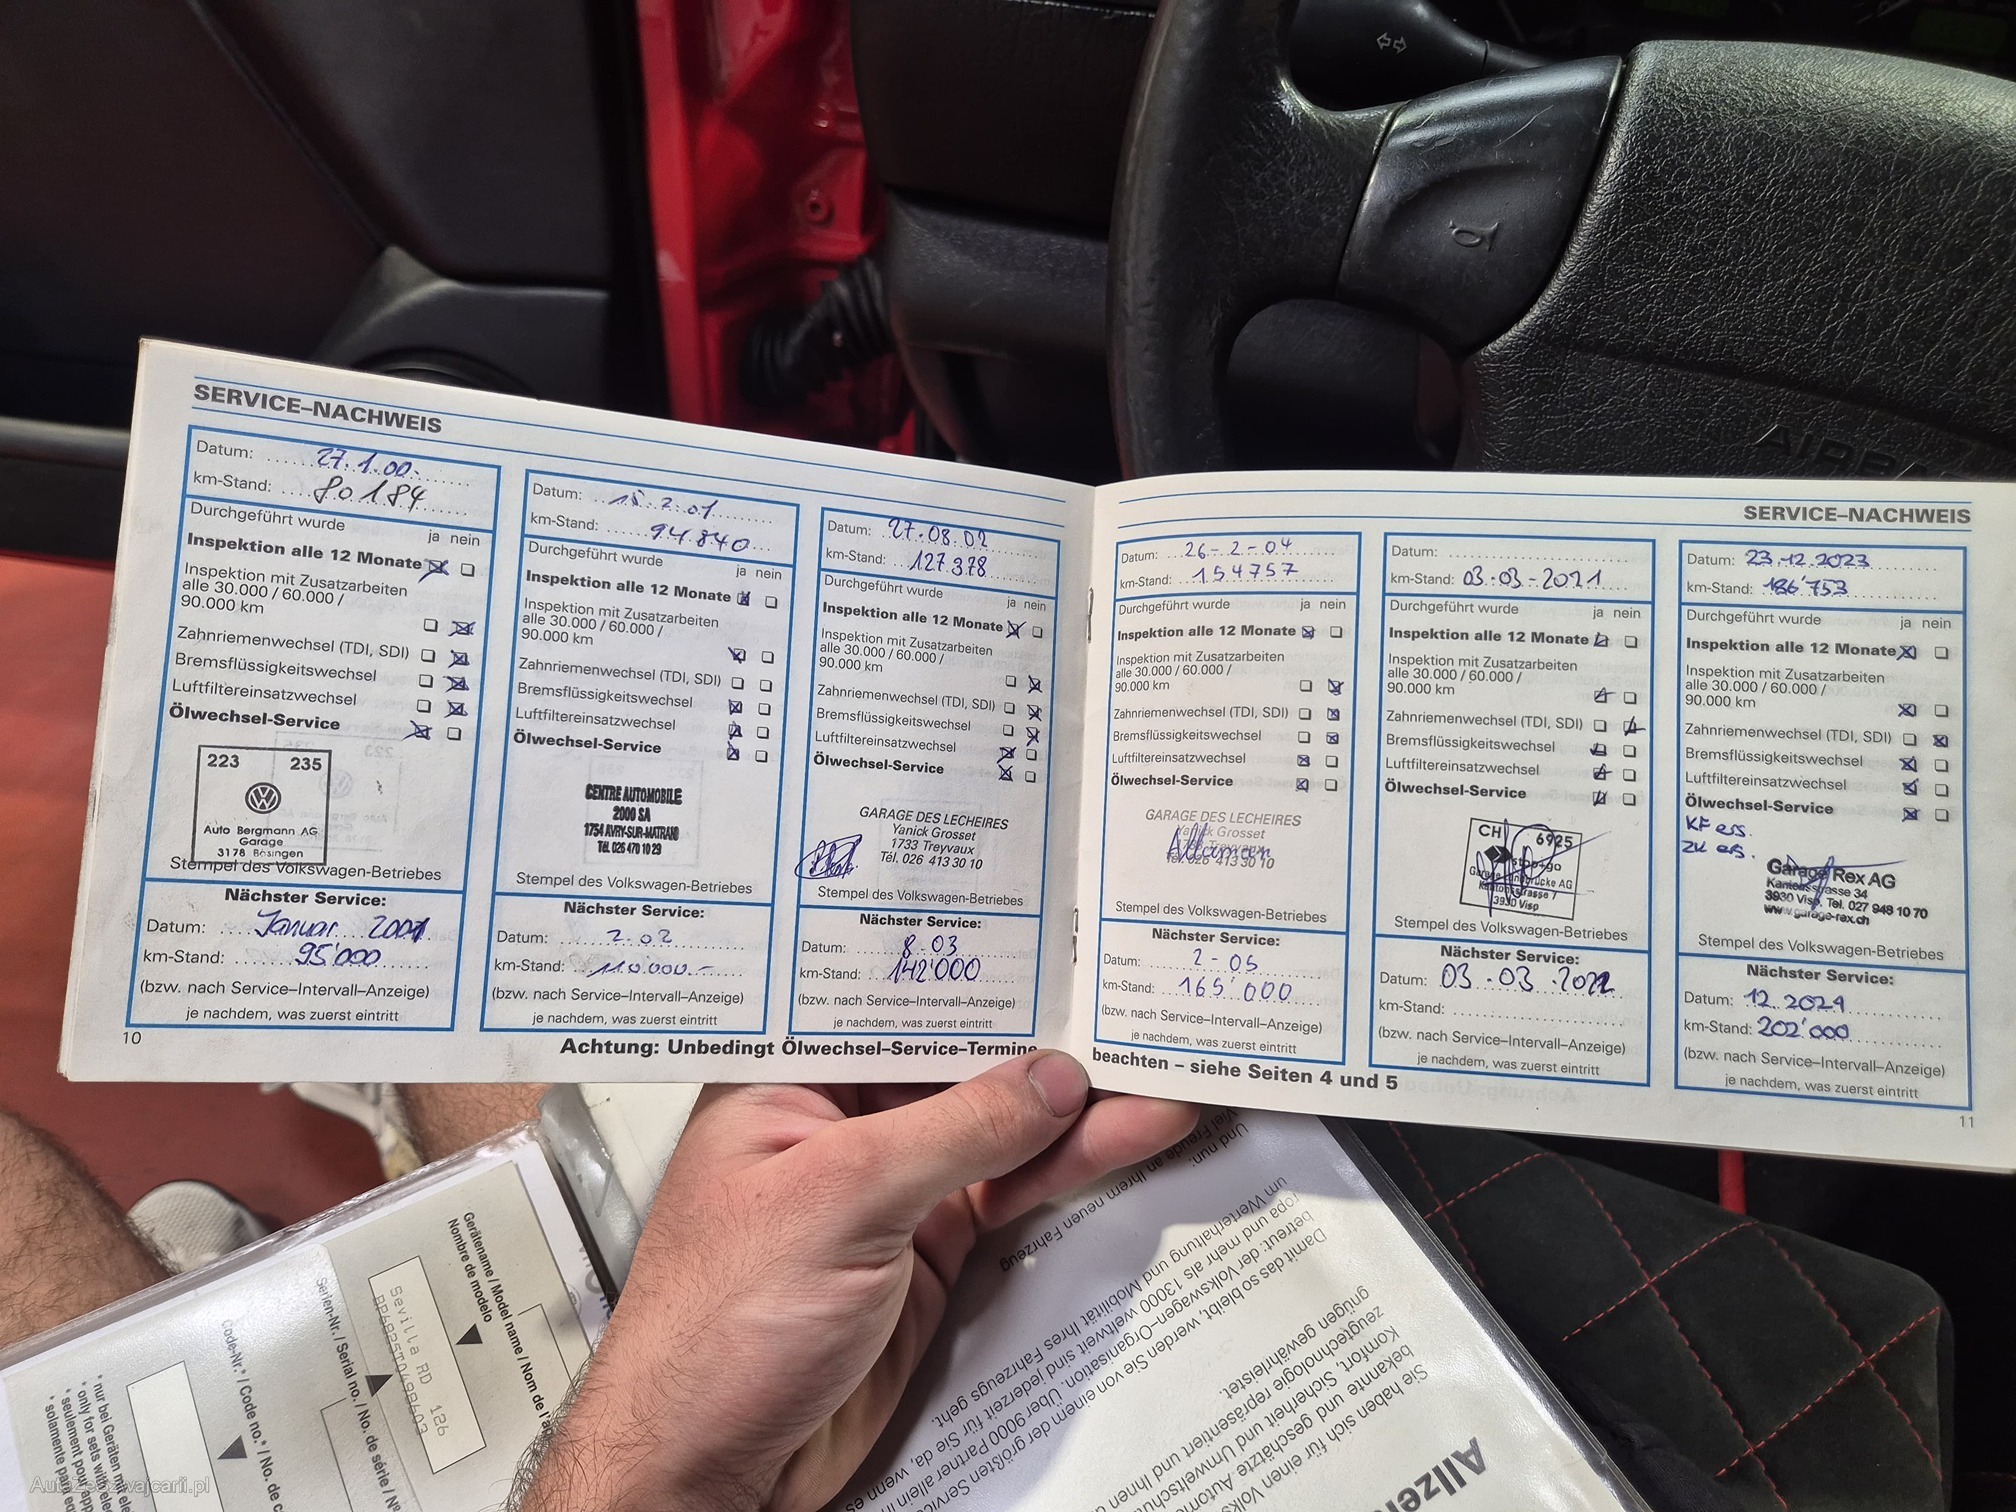 SERVICE–NACHWEIS
Datum: 27.1.00.
km-Stand: 80184
Durchgeführt wurde
ja nein
Inspektion alle 12 Monate
Inspektion mit Zusatzarbeiten
alle 30.000 / 60.000 /
90.000 km
Zahnriemenwechsel (TDI, SDI)
Bremsflüssigkeitswechsel
Luftfiltereinsatzwechsel
Ölwechsel-Service
223 235
Auto Bergmann AG
Garage
3178 Bösingen
Stempel des Volkswagen-Betriebes
Nächster Service:
Datum: Januar 2001
km-Stand: 95'000
(bzw. nach Service–Intervall–Anzeige)
je nachdem, was zuerst eintritt
10
Datum: 15.2.01
km-Stand: 94.840
Durchgeführt wurde
ja nein
Inspektion alle 12 Monate
Inspektion mit Zusatzarbeiten
alle 30.000 / 60.000 /
90.000 km
Zahnriemenwechsel (TDI, SDI)
Bremsflüssigkeitswechsel
Luftfiltereinsatzwechsel
Ölwechsel-Service
CENTRE AUTOMOBILE
2000 SA
1754 AVRY-SUR-MATRAN
Tél. 026 470 10 29
Stempel des Volkswagen-Betriebes
Nächster Service:
Datum: 2-02
km-Stand: 110.000.-
(bzw. nach Service–Intervall–Anzeige)
je nachdem, was zuerst eintritt
Datum: 27.08.02
km-Stand: 127.378
Durchgeführt wurde
ja nein
Inspektion alle 12 Monate
Inspektion mit Zusatzarbeiten
alle 30.000 / 60.000 /
90.000 km
Zahnriemenwechsel (TDI, SDI)
Bremsflüssigkeitswechsel
Luftfiltereinsatzwechsel
Ölwechsel-Service
GARAGE DES LECHEIRES
Yanick Grosset
1733 Treyvaux
Tél. 026 413 30 10
Stempel des Volkswagen-Betriebes
Nächster Service:
Datum: 8.03
km-Stand: 142'000
(bzw. nach Service–Intervall–Anzeige)
je nachdem, was zuerst eintritt
Achtung: Unbedingt Ölwechsel–Service–Termine
SERVICE–NACHWEIS
Datum: 26-2-04
km-Stand: 154757
Durchgeführt wurde
ja nein
Inspektion alle 12 Monate
Inspektion mit Zusatzarbeiten
alle 30.000 / 60.000 /
90.000 km
Zahnriemenwechsel (TDI, SDI)
Bremsflüssigkeitswechsel
Luftfiltereinsatzwechsel
Ölwechsel-Service
GARAGE DES LECHEIRES
Yanick Grosset
1733 Treyvaux
Tél. 026 413 30 10
Stempel des Volkswagen-Betriebes
Nächster Service:
Datum: 2-05
km-Stand: 165'000
(bzw. nach Service–Intervall–Anzeige)
je nachdem, was zuerst eintritt
Datum:
km-Stand: 03-03-2021
Durchgeführt wurde
ja nein
Inspektion alle 12 Monate
Inspektion mit Zusatzarbeiten
alle 30.000 / 60.000 /
90.000 km
Zahnriemenwechsel (TDI, SDI)
Bremsflüssigkeitswechsel
Luftfiltereinsatzwechsel
Ölwechsel-Service
CH 6925
stop+go
3930 Visp
Stempel des Volkswagen-Betriebes
Nächster Service:
Datum: 03.03.2022
km-Stand:
(bzw. nach Service–Intervall–Anzeige)
je nachdem, was zuerst eintritt
Datum: 23.12.2023
km-Stand: 186'753
Durchgeführt wurde
ja nein
Inspektion alle 12 Monate
Inspektion mit Zusatzarbeiten
alle 30.000 / 60.000 /
90.000 km
Zahnriemenwechsel (TDI, SDI)
Bremsflüssigkeitswechsel
Luftfiltereinsatzwechsel
Ölwechsel-Service
KF ers.
ZK ers.
Garage Rex AG
Kantonsstrasse 34
3930 Visp, Tel. 027 948 10 70
www.garage-rex.ch
Stempel des Volkswagen-Betriebes
Nächster Service:
Datum: 12.2024
km-Stand: 202'000
(bzw. nach Service–Intervall–Anzeige)
je nachdem, was zuerst eintritt
beachten – siehe Seiten 4 und 5
11
AIRBAG
Gerätename / Model name / Nom de l'
Nombre de modelo
Sevilla RD 126
Serien-Nr. / Serial no. / No. de série / Nº
Code-Nr.* / Code no.* / No. de c
* nur bei Geräten
* only for sets with
* seulement pour
* solamente para
Und nun:
Viel Freude an Ihrem neuen Fahrzeug
um Werterhaltung und Mobilität Ihres Fahrzeugs geht.
ropa und mehr als 13000 weltweit sind jederzeit für Sie da, wenn es
betreut: der Volkswagen–Organisation. Über 9000 Partner allein in
Damit das so bleibt, werden Sie von einem der größten Service
gnügen gewährleistet.
zeugtechnologie repräsentiert und Ihnen
Komfort, Sicherheit und Umweltschutz
bekannte und geschätzte
Sie haben sich für einen Volks
Allzeit
AutaZeSzwajcarii.pl